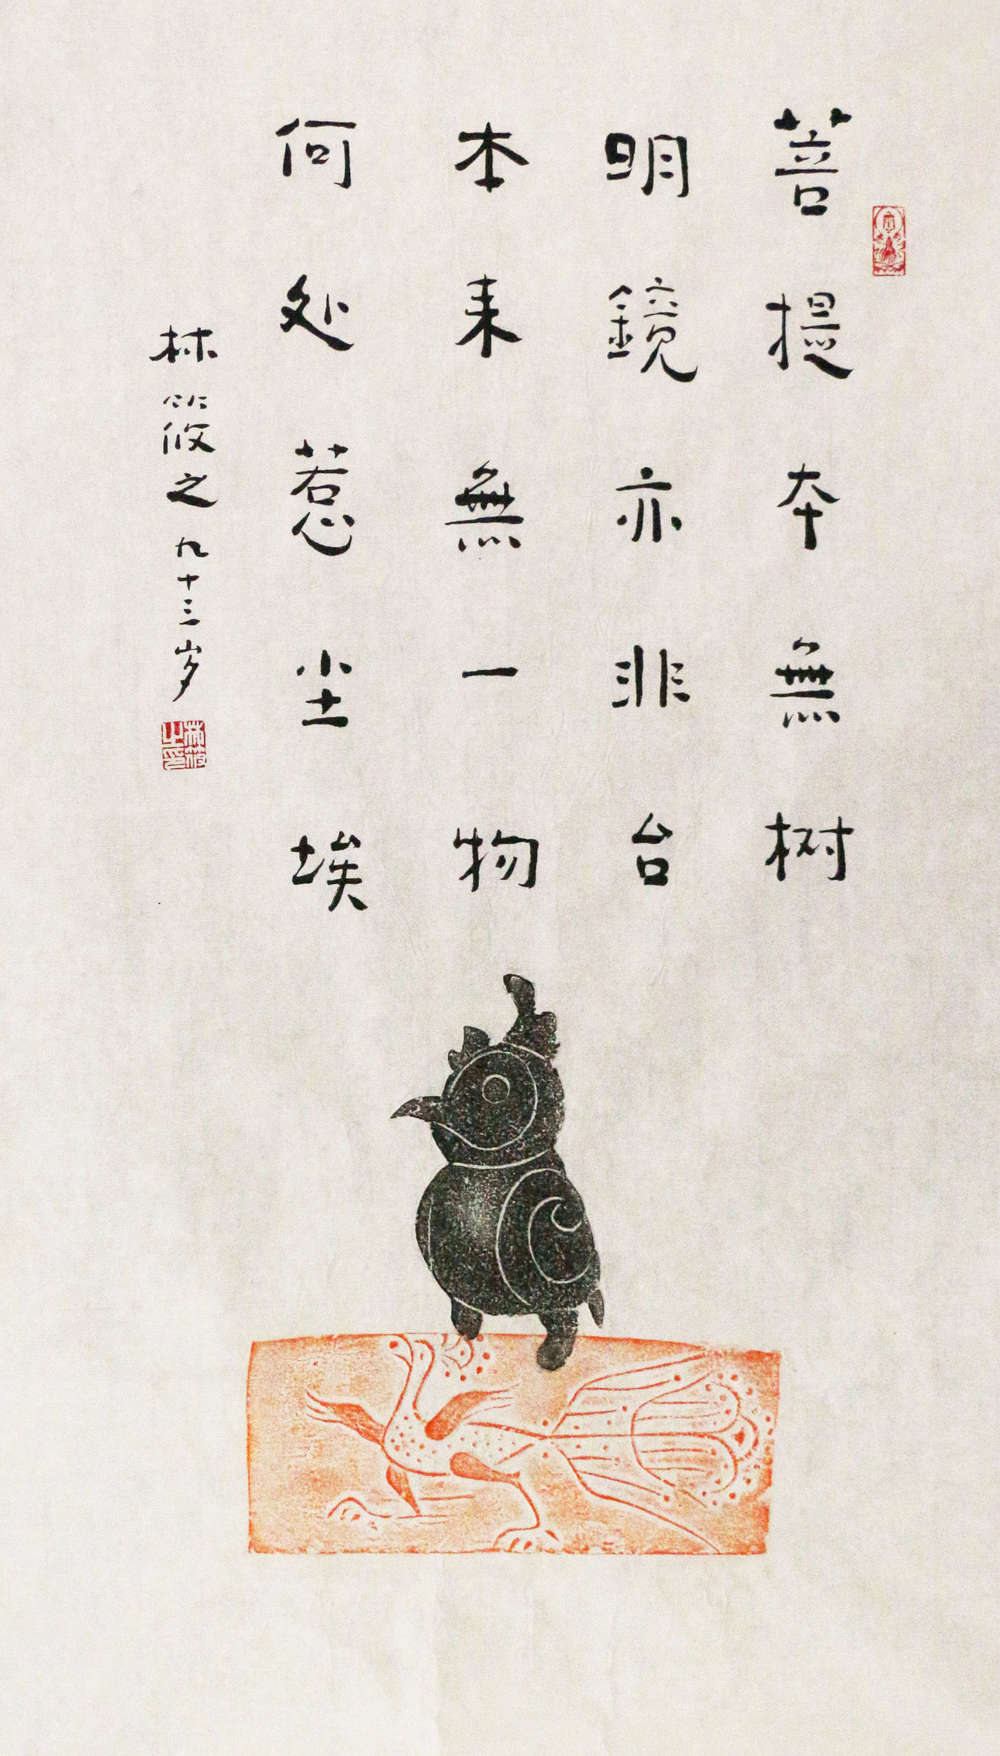 菩提本無树
明鏡亦非台
本来無一物
何处惹尘埃
林筱之九十三岁
林筱之印